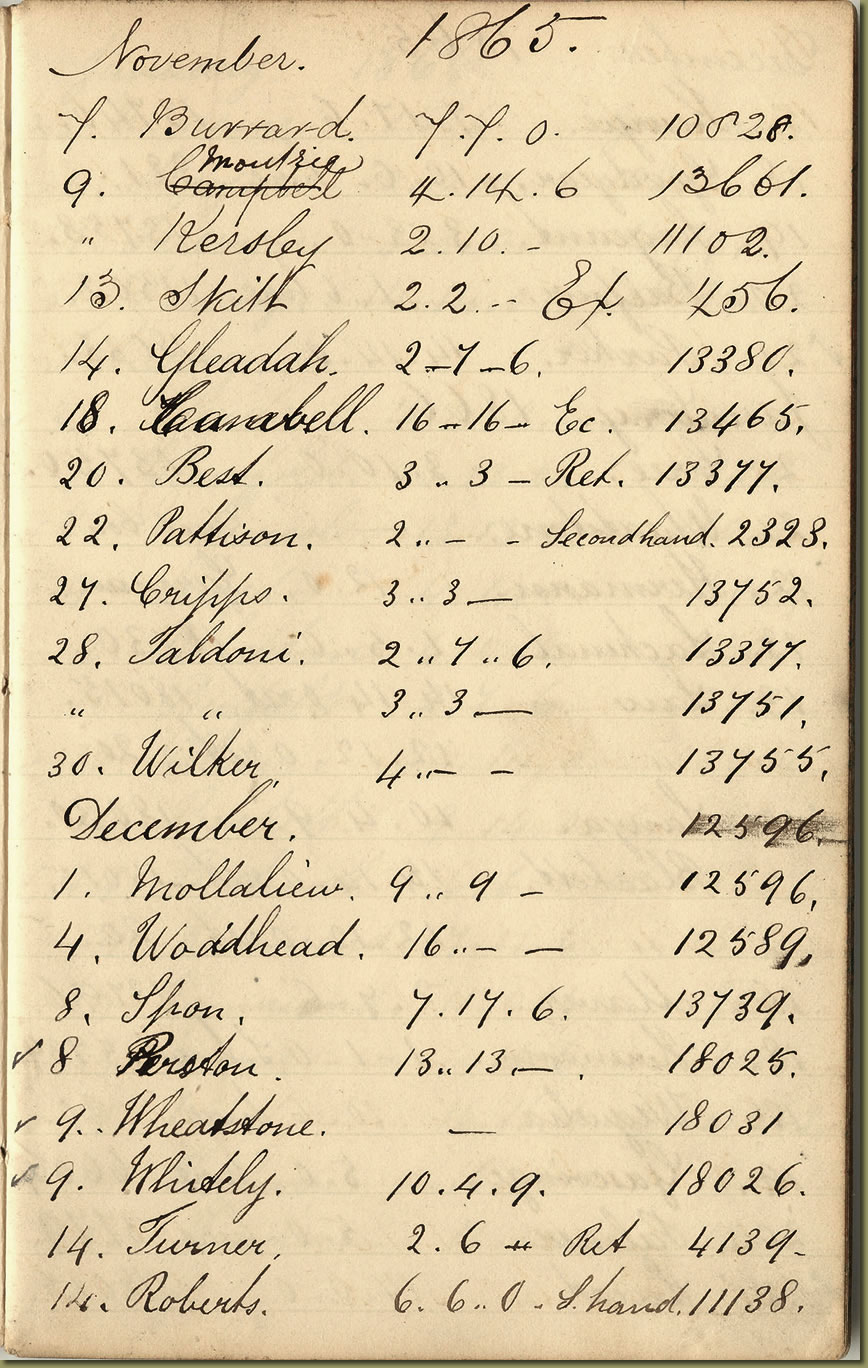 November. 1865.
7. Burrard. 7.7.0. 10828.
Moutrie
9. Campbell 4.14.6 13661.
" Kersley 2.10.- 11102.
13. Skitt 2.2.-- Ex. 456.
14. Gleadah. 2-7-6. 13380.
18. Cambell. 16-16- Ec. 13465.
20. Best. 3..3- Ret. 13377.
22. Pattison. 2..- - Secondhand. 2323.
27. Cripps. 3..3- 13752.
28. Taldoni. 2..7..6. 13377.
" " 3..3- 13751.
30. Wilker. 4..- - 13755.
December. 12596.
1. 9..9- 12596.
4. Woodhead. 16..- - 12589.
8. Spon. 7.17.6. 13739.
✓ 8 13..13.-. 18025.
✓ 9.. Wheatstone. - 18031
✓ 9. Whitely. 10.4.9. 18026.
14. Turner. 2.6 - Ret 4139-
14. Roberts. 6.6..0- S.hand. 11138.